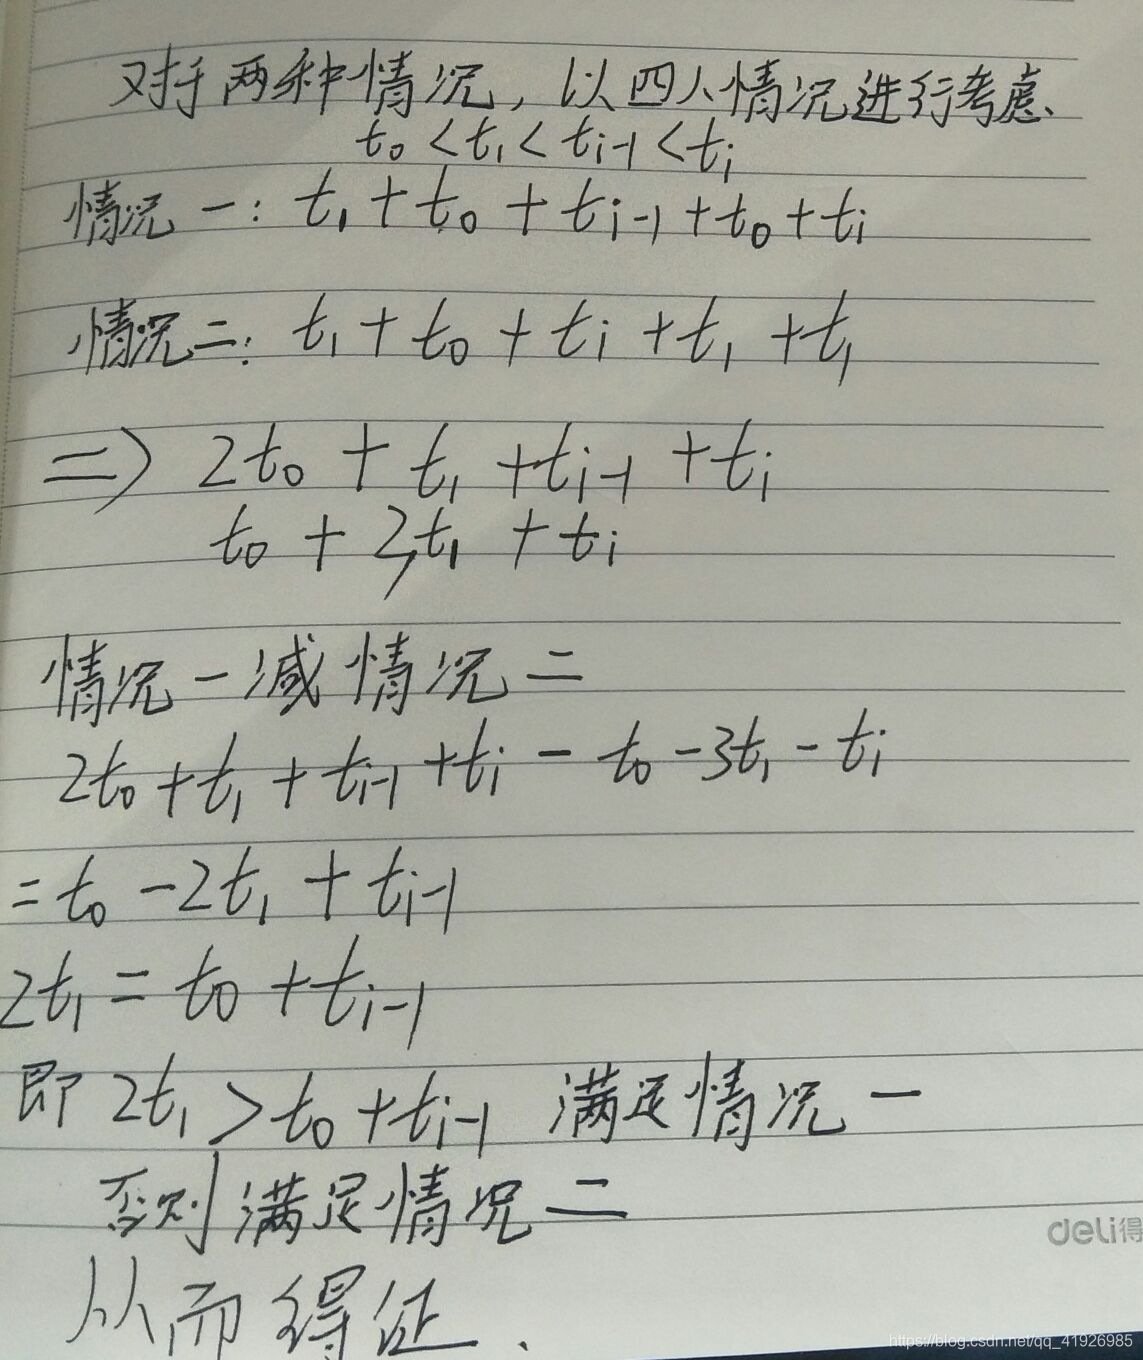 对于两种情况，以四人情况进行考虑、
t₀ < t₁ < tᵢ₋₁ < tᵢ
情况一：t₁ + t₀ + tᵢ₋₁ + t₀ + tᵢ
情况二：t₁ + t₀ + tᵢ + t₁ + t₁
=> 2t₀ + t₁ + tᵢ₋₁ + tᵢ
t₀ + 2,t₁ + tᵢ
情况一减情况二
2t₀ + t₁ + tᵢ₋₁ + tᵢ - t₀ - 3t₁ - tᵢ
= t₀ - 2t₁ + tᵢ₋₁
2t₁ = t₀ + tᵢ₋₁
即 2t₁ > t₀ + tᵢ₋₁ 满足情况一
否则满足情况二
从而得证.
deli得
https://blog.csdn.net/qq_41926985